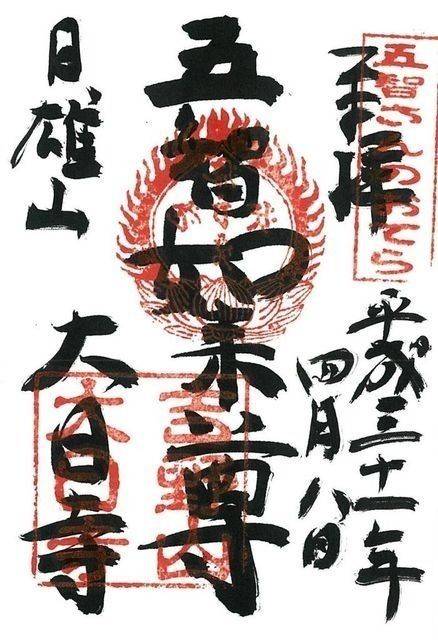 五智さんのおてら
奉拝
平成三十一年
四月八日
五智如来尊
日雄山
大日寺
吉野山
大日寺